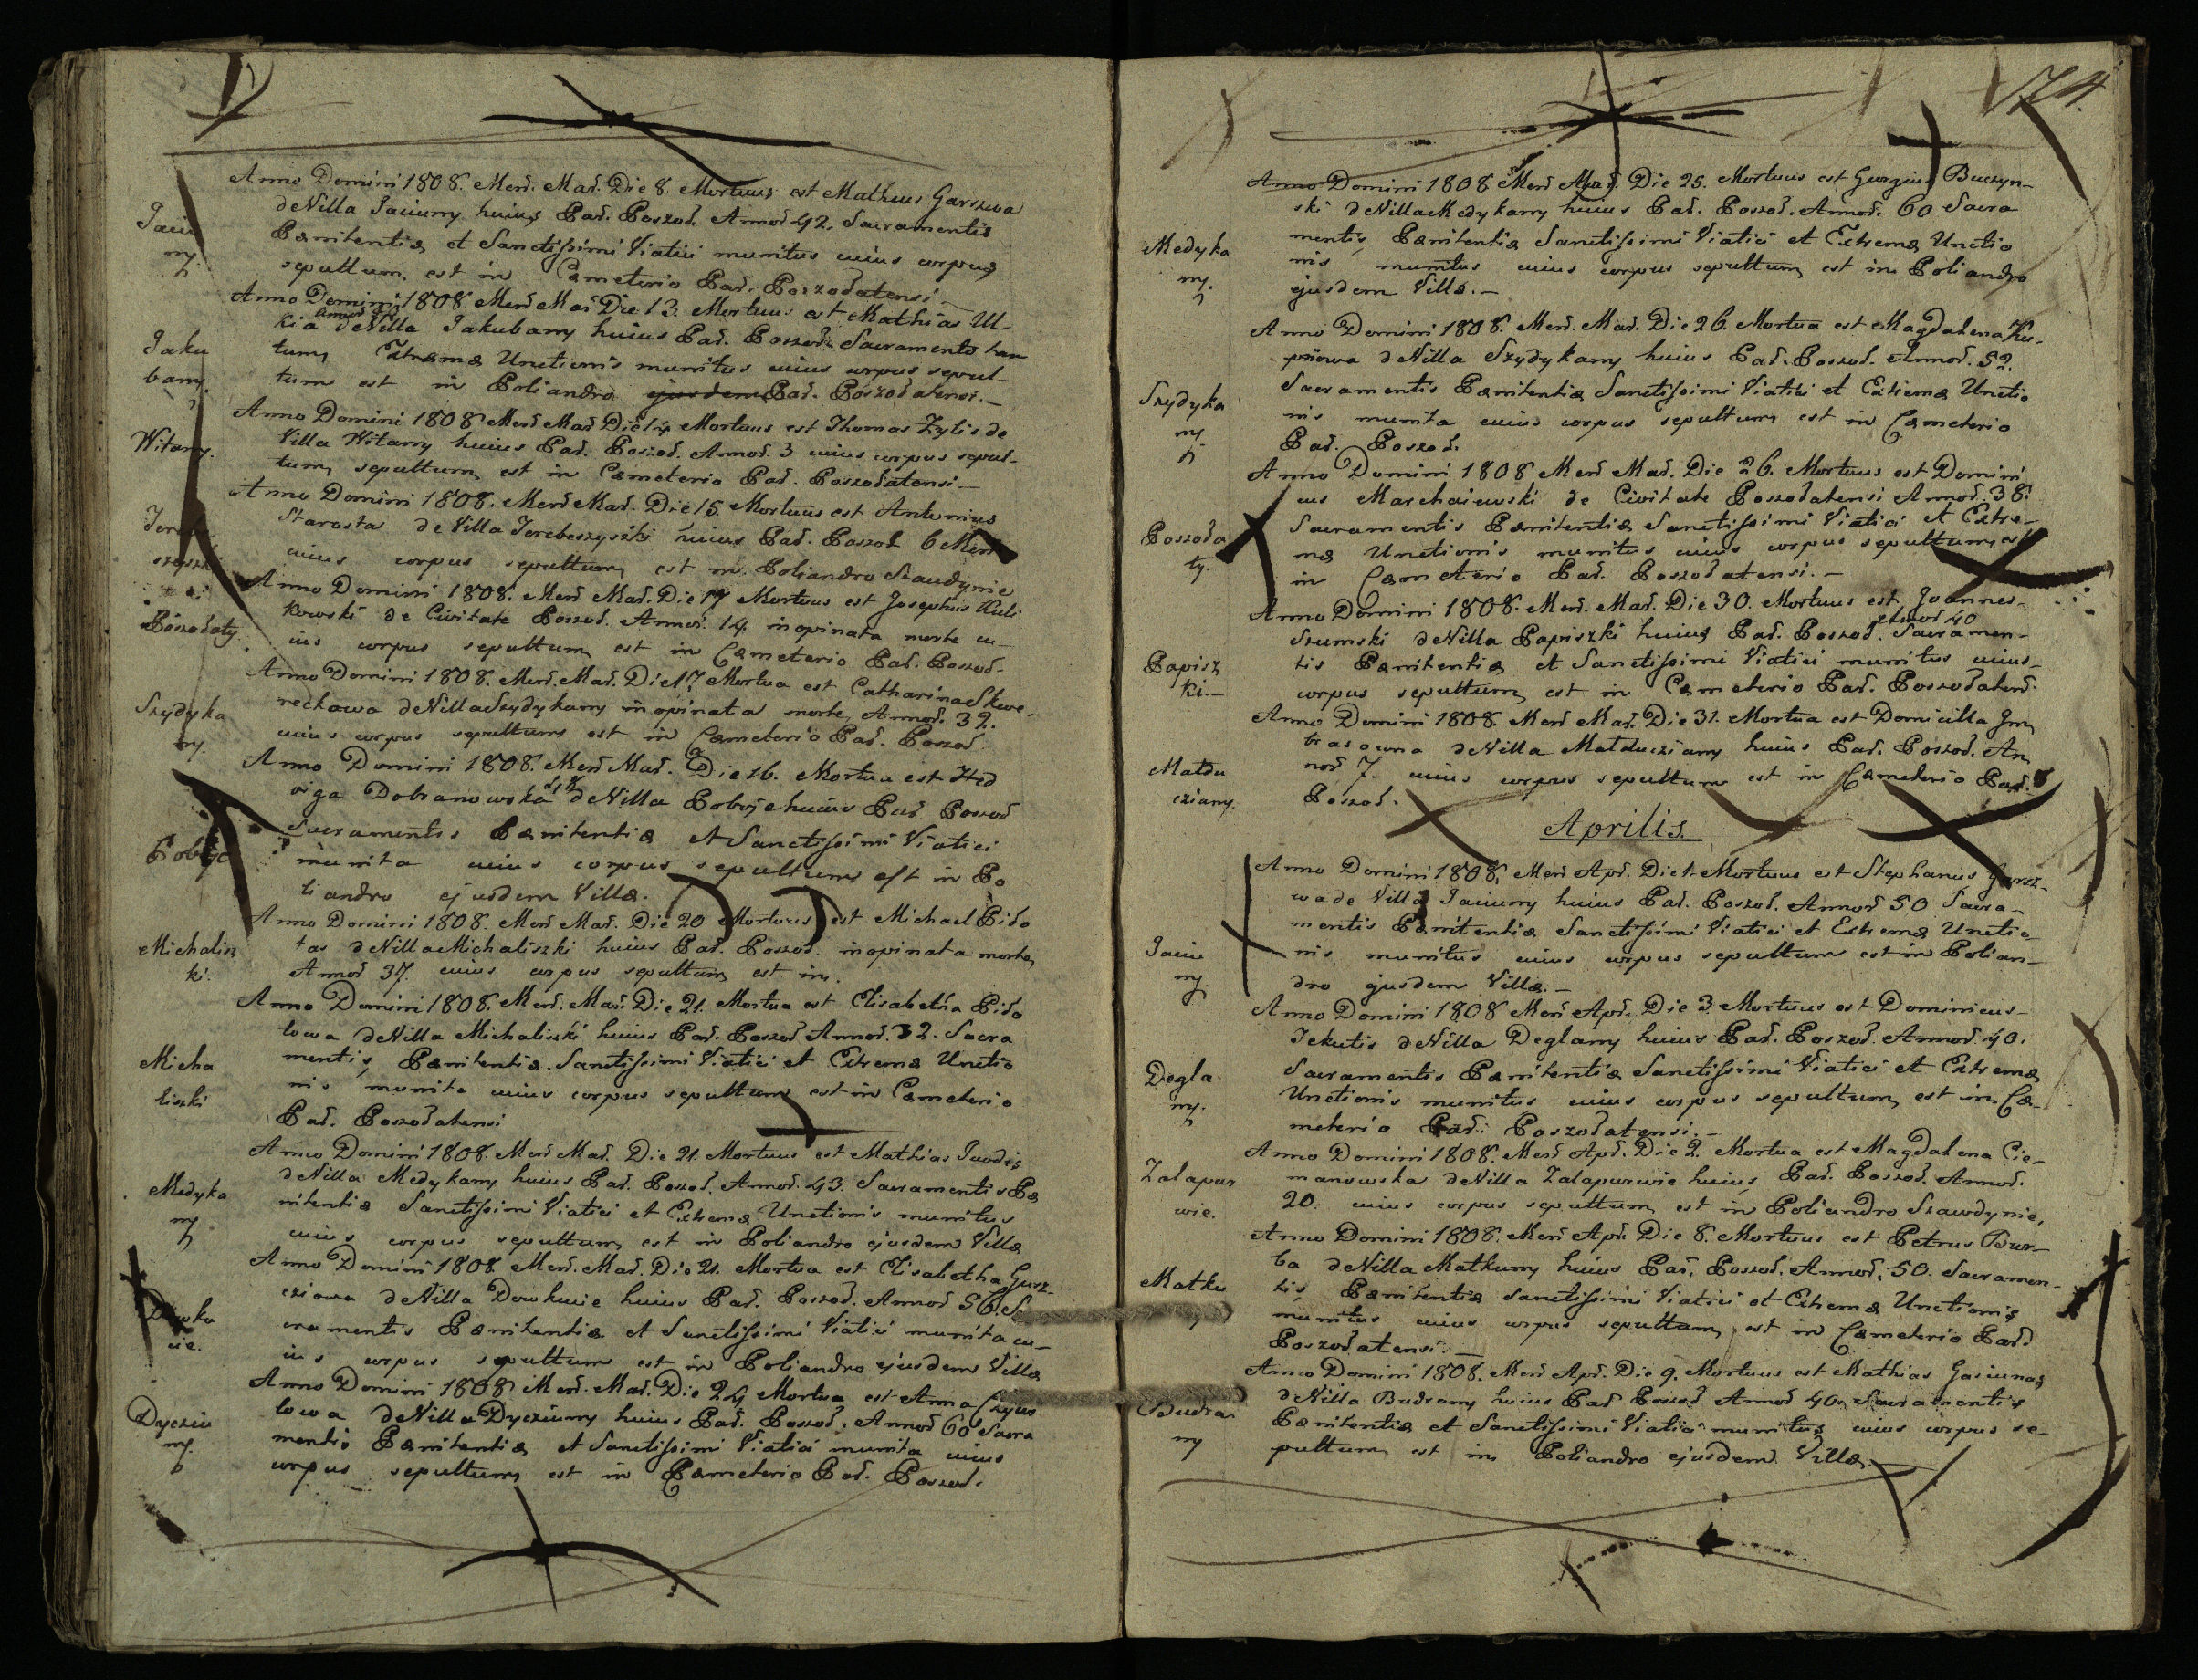 Anno Domini 1808. Men̄. Mar̄. Die 8. Mortuus est Matheus Garszwa
Jaciu
de Villa Jaciuny huius Par̄. Poszoł. Annor̄ 42. Sacramentis
ny.
Pænitentiæ et Sanctissimi Viatici munitus cuius corpus
sepultum est in Cæmeterio Par̄. Poszołatensi.
Anno Domini 1808 Men̄ Mar̄ Die 13. Mortuus est Mathias Ul-
kia de Villa Jakubany huius Par̄. Poszoł. Sacramento tan
Jaku
bany.
tum Extremæ Unctionis munitus cuius corpus sepul-
tum est in Poliandro ejusdem Par̄. Poszołatensi.—
Anno Domini 1808 Men̄ Mar̄ Die 14 Mortuus est Thomas Zylis de
Witany.
Villa Witany huius Par̄. Poszoł. Annor̄. 3 cuius corpus sepul-
tum sepultum est in Cæmeterio Par̄. Poszołatensi—
Anno Domini 1808. Men̄ Mar̄. Die 15. Mortuus est Antonius
Starosta de Villa Jerebeszyszki huius Par̄. Poszoł 6 Men̄
cuius corpus sepultum est in Poliandro Szaudynie
Anno Domini 1808. Men̄ Mar̄. Die 17 Mortuus est Josephus Kuli
Poszołaty.
kowski de Civitate Poszoł. Annor̄. 14. inopinata morte cu-
ius corpus sepultum est in Cæmeterio Par̄. Poszoł-
Anno Domini 1808. Men̄. Mar̄. Die 17. Mortua est Catharina Skwe-
Szydyka
ny.
reckowa de Villa Szydykany inopinata morte, Annor̄. 32.
cuius corpus sepultum est in Cæmeterio Par̄. Poszoł.
Anno Domini 1808. Men̄ Mar̄. Die 16. Mortua est Hed
viga Dobranowska 48 de Villa Poboje huius Par̄ Poszoł
Poboje
Sacramentis Pænitentiæ et Sanctissimi Viatici
munita cuius corpus sepultum est in Po
liandro ejusdem Villæ.
Anno Domini 1808. Men̄ Mar̄. Die 20 Mortuus est Michael Pido
Michalisz
ki.
tas de Villa Michaliszki huius Par̄. Poszoł. inopinata morte,
Annor̄ 37. cuius corpus sepultum est in.
Anno Domini 1808. Men̄. Mar̄. Die 21. Mortua est Elisabetha Pido
towa de Villa Michaliszki huius Par̄. Poszoł Annor̄. 32. Sacra
Micha
liszki
mentis, Pænitentiæ. Sanctissimi Viatici et Extremæ Unctio
nis munita cuius corpus sepultum est in Cæmeterio
Par̄. Poszołatensi
Anno Domini 1808. Men̄ Mar̄. Die 21. Mortuus est Mathias Juodis
Medyka
ny
de Villa Medykany huius Par̄. Poszoł. Annor̄. 43. Sacramentis Pæ
nitentiæ Sanctissimi Viatici et Extremæ Unctionis munitus
cuius corpus sepultum est in Poliandro ejusdem Villæ
Anno Domini 1808. Men̄. Mar̄. Die 21. Mortua est Elisabetha Gusz-
cziowa de Villa Dowkucie huius Par̄. Poszoł. Annor̄ 56. Sa
cramentis Pænitentiæ et Sanctissimi Viatici munita cu-
cie.
ius corpus sepultum est in Poliandro ejusdem Villæ
Anno Domini 1808. Men̄. Mar̄. Die 24 Mortua est Anna
Dycziu
ny.
towa de Villa Dycziuny huius Par̄. Poszoł. Annor̄ 60 Sacra
mentis Pænitentiæ et Sanctissimi Viatici munita cuius
corpus sepultum est in Cæmeterio Par̄. Poszoł.
174.
Anno Domini 1808 Men̄ Mar̄. Die 25. Mortuus est Georgius Buczyn-
ski de Villa Medykany huius Par̄. Poszoł. Annor̄. 60 Sacra
Medyka
ny.
mentis, Pænitentiæ Sanctissimi Viatici et Extremæ Unctio
nis munitus cuius corpus sepultum est in Poliandro
ejusdem Villæ.—
Anno Domini 1808. Men̄. Mar̄. Die 26. Mortua est Magdalena Ku-
psiowa de Villa Szydykany huius Par̄. Poszoł. Annor̄. 52.
Szydyka
ny.
Sacramentis Pænitentiæ Sanctissimi Viatici et Extremæ Unctio
nis munita cuius corpus sepultum est in Cæmeterio
Par̄. Poszoł.
Anno Domini 1808 Men̄ Mar̄. Die 26. Mortuus est Domini
cus Marchaiewski de Civitate Poszołatensi Annor̄. 38.
Poszoła
ty.
Sacramentis Pænitentiæ Sanctissimi Viatici et Extre-
mæ Unctionis munitus cuius corpus sepultum est
in Cæmeterio Par̄. Poszołatensi.—
Anno Domini 1808. Men̄. Mar̄. Die 30. Mortuus est Joannes-
Annor̄ 40
Szumski de Villa Papiszki huius Par̄. Poszoł. Sacramen-
Papisz
ki.—
tis Pænitentiæ et Sanctissimi Viatici munitus cuius-
corpus sepultum est in Cæmeterio Par̄. Poszołaten̄.
Anno Domini 1808. Men̄ Mar̄. Die 31. Mortua est Domicilla Jm
brasowna de Villa Małducziany huius Par̄. Poszoł. An
Małdu
cziany.
nor̄ 7. cuius corpus sepultum est in Cæmeterio Par̄.
Poszoł.
Aprilis.
Anno Domini 1808. Men̄ Apr̄. Die 1. Mortuus est Stephanus Garsz-
wa de Villa Jaciuny huius Par̄. Poszoł. Annor̄ 50 Sacra-
Jaciu
ny.
mentis Pænitentiæ Sanctissimi Viatici et Extremæ Unctio-
nis munitus cuius corpus sepultum est in Polian-
dro ejusdem Villæ.—
Anno Domini 1808 Men̄ Apr̄. Die 3. Mortuus est Dominicus-
Jekutis de Villa Deglany huius Par̄. Poszoł. Annor̄. 40.
Degla
ny.
Sacramentis Pænitentiæ Sanctissimi Viatici et Extremæ
Unctionis munitus cuius corpus sepultum est in Cæ-
meterio Par̄. Poszołatensi.—
Anno Domini 1808. Men̄ Apr̄. Die 2. Mortua est Magdalena Cie-
Zalapur
wie.
manowska de Villa Zalapurwie huius Par̄. Poszoł. Annor̄.
20. cuius corpus sepultum est in Poliandro Szawdynie,
Anno Domini 1808. Men̄ Apr̄. Die 8. Mortuus est Petrus Bur-
ba de Villa Matkuny huius Par̄. Poszoł. Annor̄. 50. Sacramen-
Matku
tis Pænitentiæ Sanctissimi Viatici et Extremæ Unctionis
munitus cuius corpus sepultum est in Cæmeterio Par̄.
Poszołatensi.—
Anno Domini 1808. Men̄ Apr̄. Die 9. Mortuus est Mathias Gasiunas
Budra
ny
de Villa Budrany huius Par̄ Poszoł Annor̄ 40. Sacramentis
Pænitentiæ et Sanctissimi Viatici munitus cuius corpus se-
pultum est in Poliandro ejusdem Villæ.